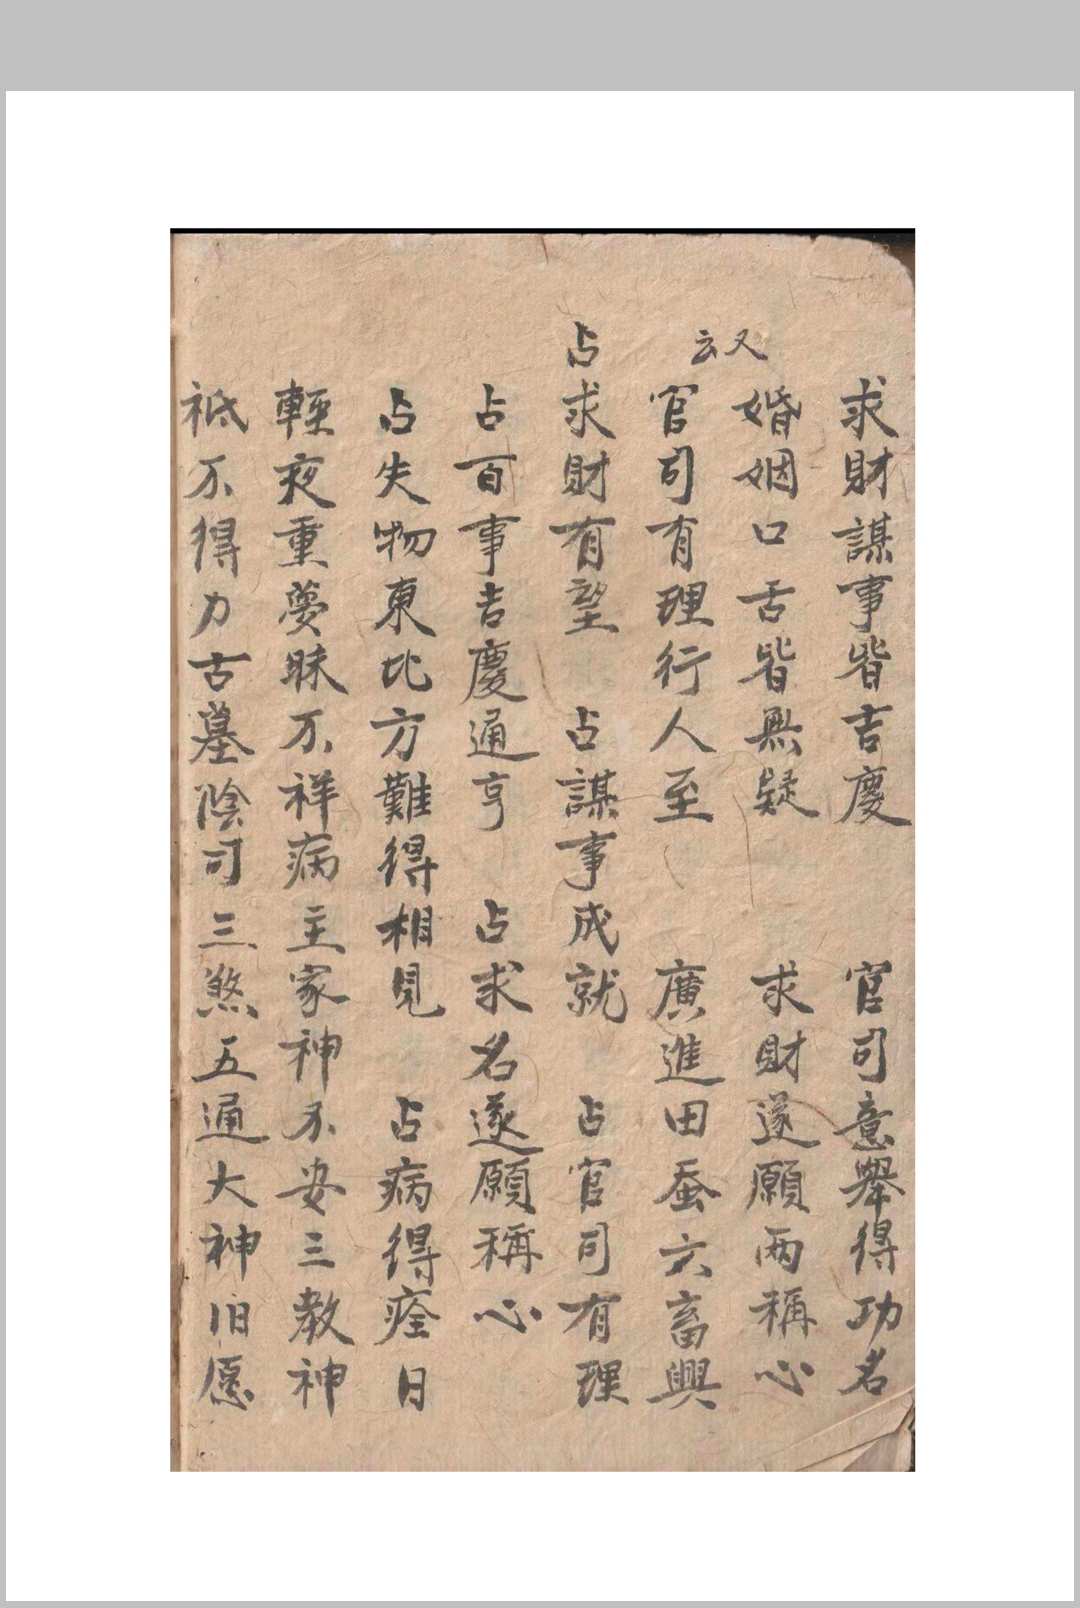 求財謀事皆吉慶 官司意舉得功名
婚姻口舌皆無疑 求財遂願兩稱心
又云
官司有理行人至 廣進田蚕六畜興
占求財有望 占謀事成就 占官司有理
占百事吉慶通亨 占求名遂願稱心
占失物東北方難得相見 占病得痊日
輕夜重夢昧不祥病主家神不安三教神
祇不得力古墓陰司三煞五通大神旧愿